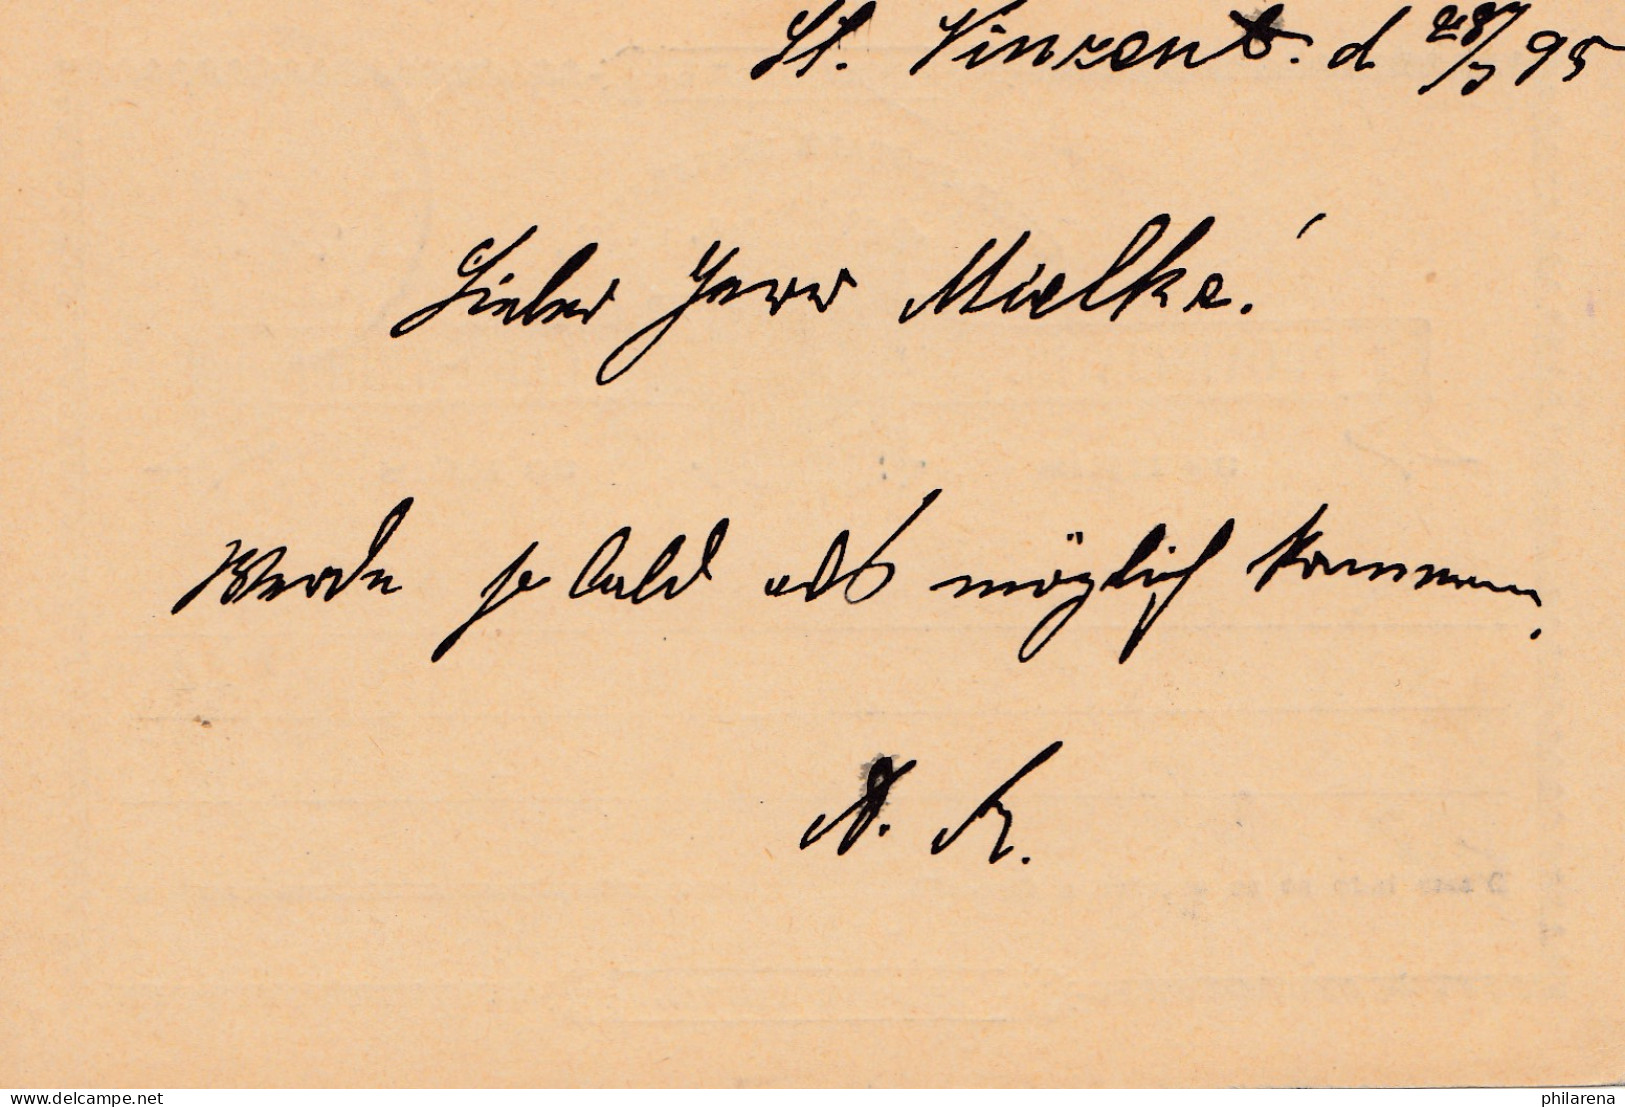 St. Vinzent. d 28/7 95
Lieber Herr Mielke!
Werde so bald als möglich kommen.
A. K.
www.delcampe.net
philarena